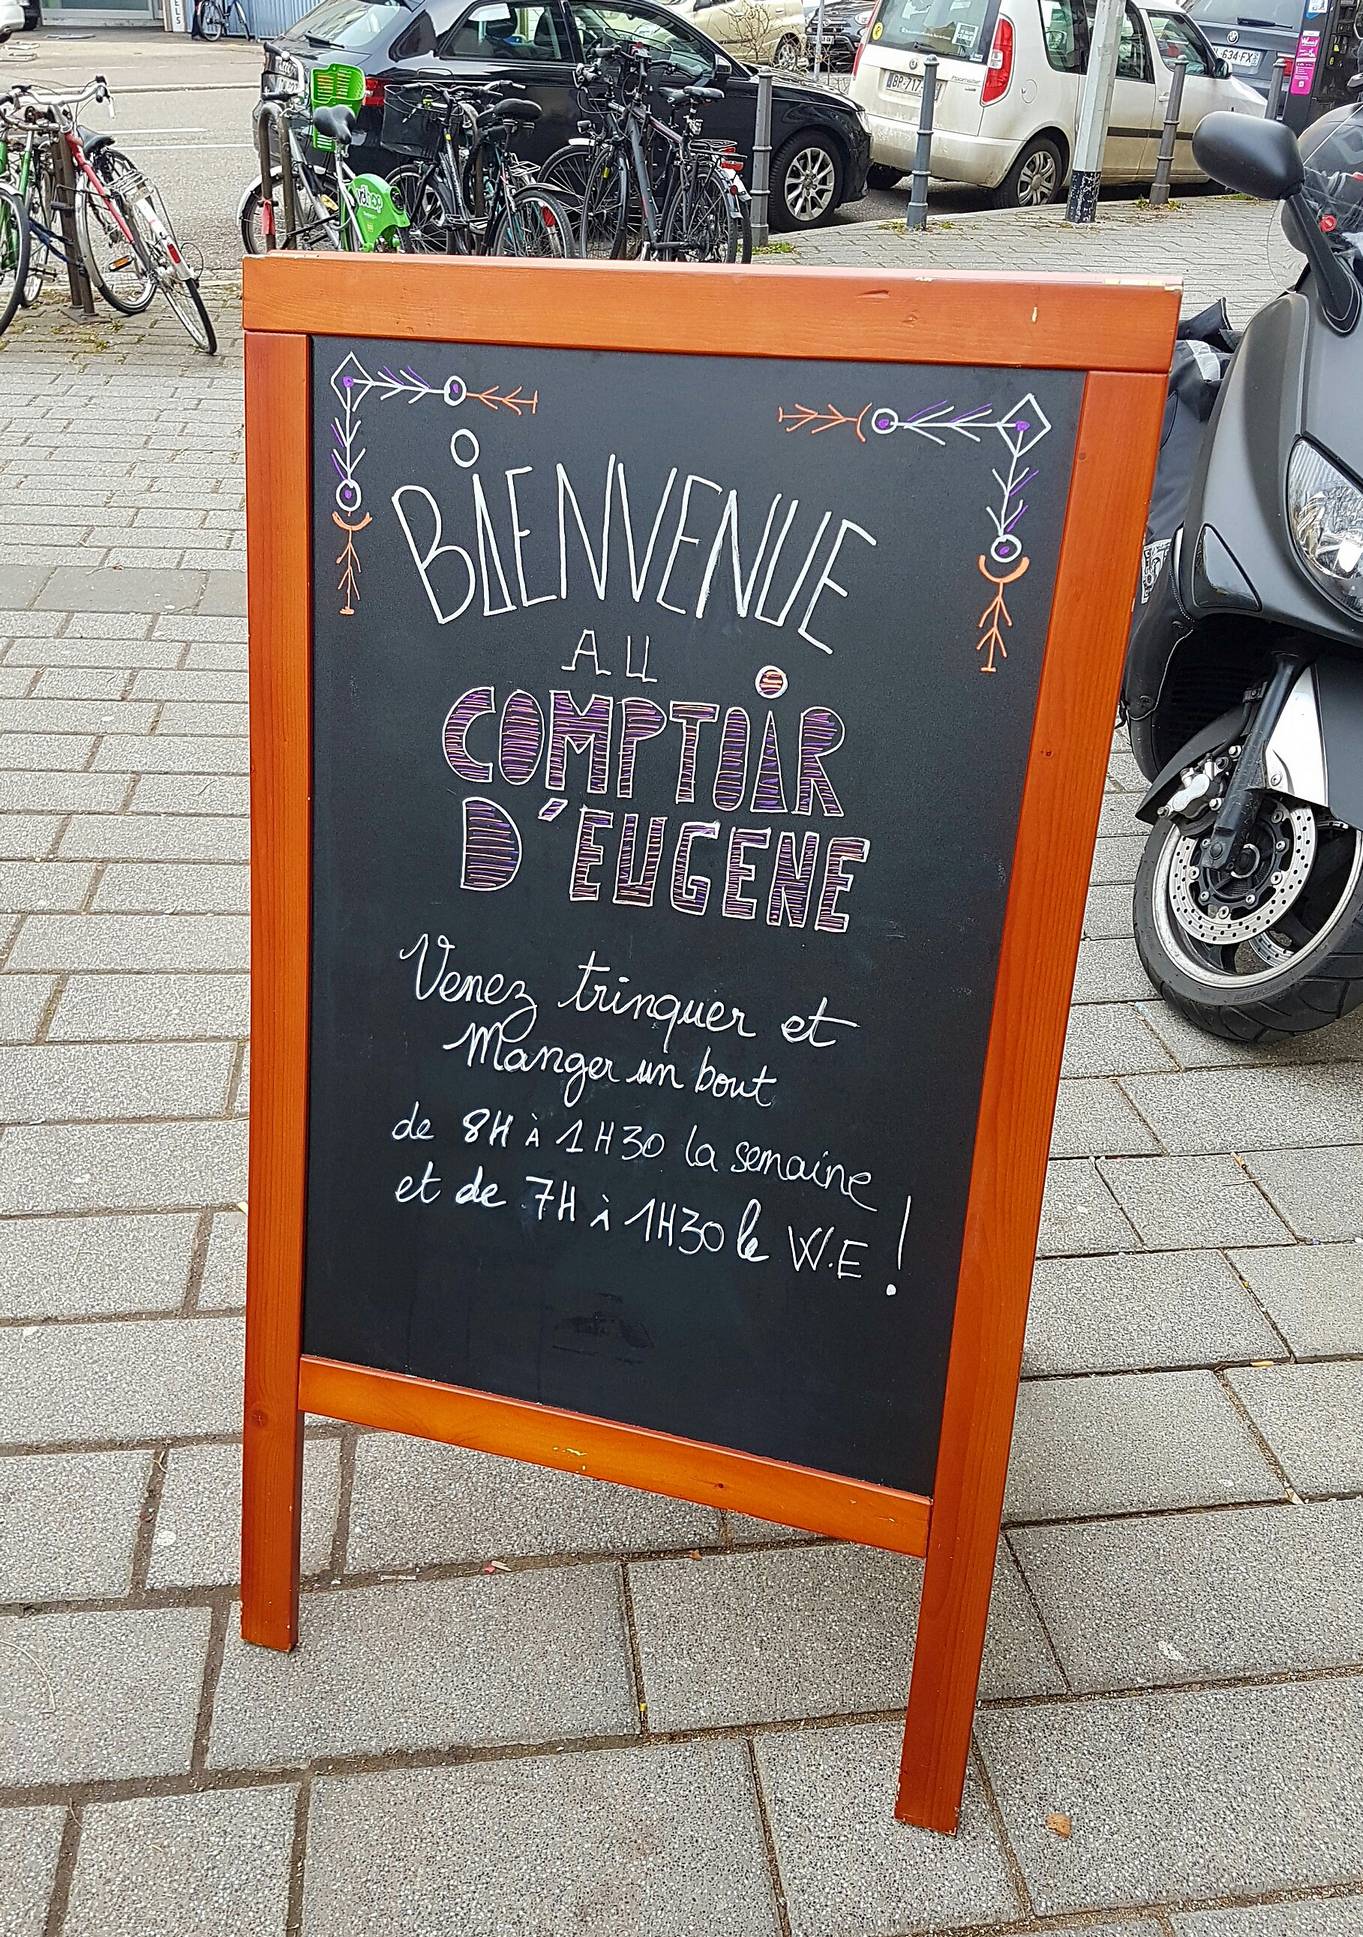 BIENVENUE
AU
COMPTOIR
D'EUGENE
Venez trinquer et
Manger un bout
de 8H à 1H30 la semaine
et de 7H à 1H30 le W.E !